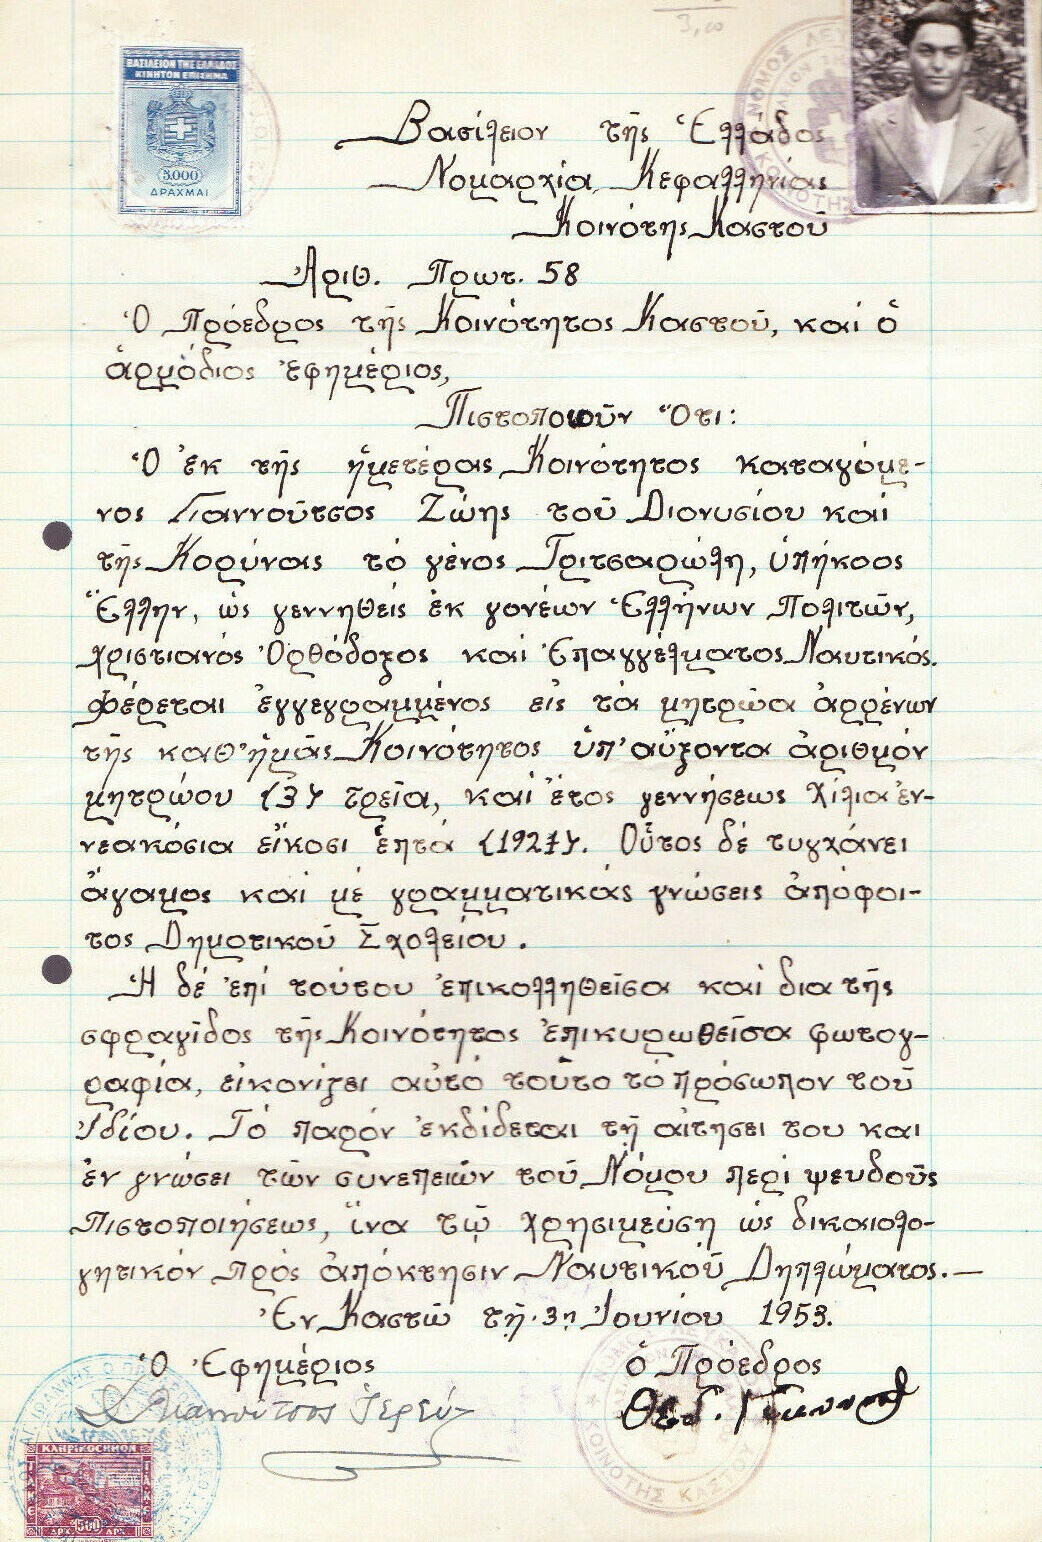 3,00
ΒΑΣΙΛΕΙΟΝ ΤΗΣ ΕΛΛΑΔΟΣ
ΚΙΝΗΤΟΝ ΕΠΙΣΗΜΑ
5.000
ΔΡΑΧΜΑΙ
Βασίλειον τῆς Ἑλλάδος
Νομαρχία Κεφαλληνίας
Κοινότης Καστοῦ
Ἀριθ. Πρωτ. 58
Ὁ Πρόεδρος τῆς Κοινότητος Καστοῦ, καί ὁ
ἁρμόδιος ἐφημέριος,
Πιστοποιοῦν Ὅτι:
Ὁ ἐκ τῆς ἡμετέρας Κοινότητος καταγόμε-
νος Γιαννοῦτσος Ζώης τοῦ Διονυσίου καί
τῆς Κορίνας τό γένος Γριτσαρώλη, ὑπήκοος
Ἕλλην, ὡς γεννηθείς ἐκ γονέων Ἑλλήνων Πολιτῶν,
Χριστιανός Ὀρθόδοξος καί Ἐπαγγέλματος Ναυτικός.
Φέρεται ἐγγεγραμμένος εἰς τά μητρῶα ἀρρένων
τῆς καθ' ἡμᾶς Κοινότητος ὑπ' αὔξοντα ἀριθμόν
μητρώου (3) τρεῖα, καί ἔτος γεννήσεως χίλια ἐν-
νεακόσια εἴκοσι ἑπτά (1927). Οὗτος δέ τυγχάνει
ἄγαμος καί μέ γραμματικάς γνώσεις ἀπόφοι-
τος Δημοτικοῦ Σχολείου.
Ἡ δέ ἐπί τούτου ἐπικολληθεῖσα καί δια τῆς
σφραγῖδος τῆς Κοινότητος ἐπικυρωθεῖσα φωτογ-
ραφία, εἰκονίζει αὐτό τοῦτο τό πρόσωπον τοῦ
Ἰδίου. Τό παρόν ἐκδίδεται τῇ αἰτήσει του και
ἐν γνώσει τῶν συνεπειῶν τοῦ Νόμου περί ψευδοῦς
Πιστοποιήσεως, ἵνα τῷ χρησιμεύση ὡς δικαιολο-
γητικόν πρός ἀπόκτησιν Ναυτικοῦ Διπλώματος.—
Ἐν Καστῶ τῇ 3η Ἰουνίου 1953.
Ὁ Ἐφημέριος ὁ Πρόεδρος
Ἱερεύς Θεδ.
ΚΟΙΝΟΤΗΣ ΚΑΣΤΟΥ
ΚΛΗΡΙΚΟΣΗΜΟΝ
ΔΡΧ. 500 ΔΡΧ.